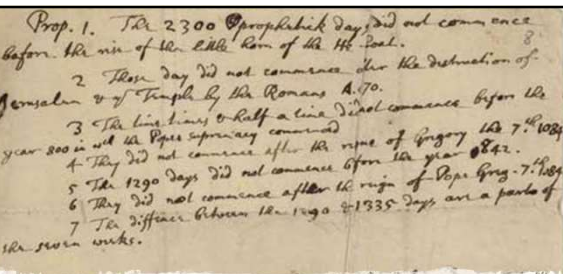 Prop. 1. The 2300 prophetick days did not commence
before the rise of the little horn of the He Goat.
8
2 Those day did not commence after the destruction of
Jerusalem & ye Temple by the Romans A. 70.
3 The time times & half a time did not commence before the
year 800 in wch the Popes supremacy commenced
4 They did not commence after the reigne of Gregory the 7.th 1084
5 The 1290 days did not commence before the year 842.
6 They did not commence after the reign of Pope Greg. 7.th 1084
7 The diffence between the 1290 & 1335 days are a parts of
the seven weeks.